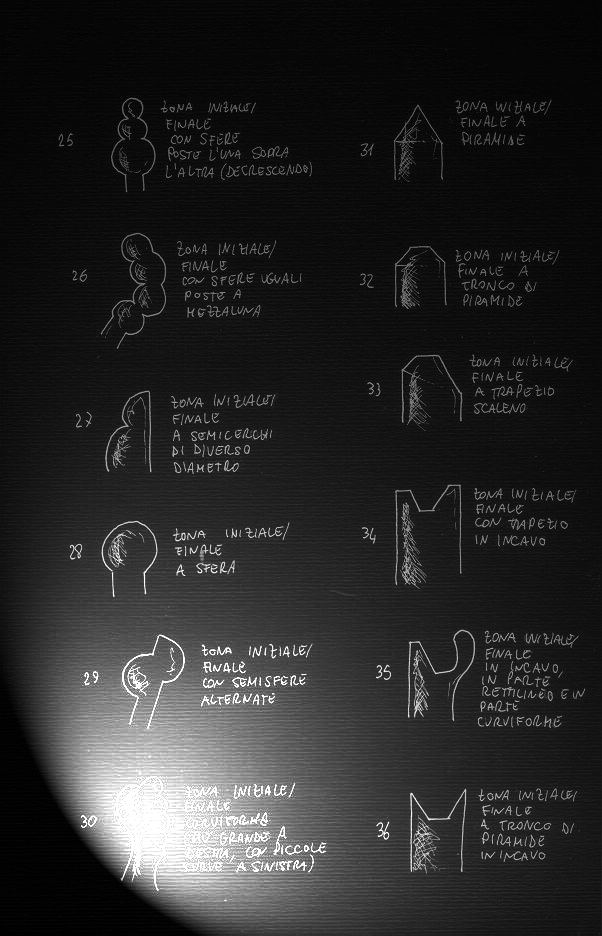 25
ZONA INIZIALE/
FINALE
CON SFERE
POSTE L'UNA SOPRA
L'ALTRA (DECRESCENDO)
26
ZONA INIZIALE/
FINALE
CON SFERE UGUALI
POSTE A
MEZZALUNA
27
ZONA INIZIALE/
FINALE
A SEMICERCHI
DI DIVERSO
DIAMETRO
28
ZONA INIZIALE/
FINALE
A SFERA
29
ZONA INIZIALE/
FINALE
CON SEMISFERE
ALTERNATE
30
ZONA INIZIALE/
FINALE
CURVIFORMA
GRANDE A
DESTRA, CON PICCOLE
CURVE A SINISTRA)
31
ZONA INIZIALE/
FINALE A
PIRAMIDE
32
ZONA INIZIALE/
FINALE A
TRONCO DI
PIRAMIDE
33
ZONA INIZIALE/
FINALE
A TRAPEZIO
SCALENO
34
ZONA INIZIALE/
FINALE
CON TRAPEZIO
IN INCAVO
35
ZONA INIZIALE/
FINALE
IN INCAVO,
IN PARTE
RETTILINEO E IN
PARTE
CURVIFORME
36
ZONA INIZIALE/
FINALE
A TRONCO DI
PIRAMIDE
IN INCAVO